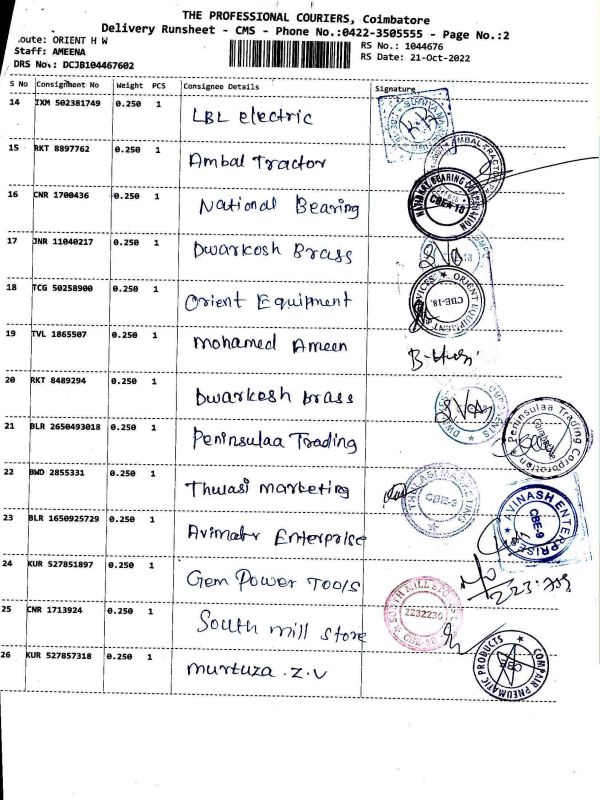 THE PROFESSIONAL COURIERS, Coimbatore
Delivery Runsheet - CMS - Phone No.:0422-3505555 - Page No.:2
oute: ORIENT H W
RS No.: 1044676
Staff: AMEENA
RS Date: 21-Oct-2022
DRS No.: DCJB104467602
S No Consignment No Weight PCS Consignee Details Signature
14 IXM 502381749 0.250 1 LBL electric
15 RKT 8897762 0.250 1 Ambal Tractor
AMBAL TRACTOR
16 CNR 1700436 0.250 1 National Bearing
NATIONAL BEARING CORPORATION
CBE-18
17 JNR 11040217 0.250 1 Dwarkosh Brass
18 TCG 50258900 0.250 1 Orient Equipment
ORIENT EQUIPMENT
CBE-18.
19 TVL 1865507 0.250 1 Mohamed Ameen
20 RKT 8489294 0.250 1 Dwarkesh brass
21 BLR 2650493018 0.250 1 Peninsulaa Trading
Peninsulaa Trading Corporation
22 BWD 2855331 0.250 1 Thulasi marketing
CBE-9
23 BLR 1650925729 0.250 1 Avinash Enterprise
AVINASH ENTERPRISE
CBE-9
24 KUR 527851897 0.250 1 Gem Power Tools
25 CNR 1713924 0.250 1 South mill store
2232230
26 KUR 527857318 0.250 1 murtuza . z . v
COMPAIR PNEUMATIC PRODUCTS
CBE